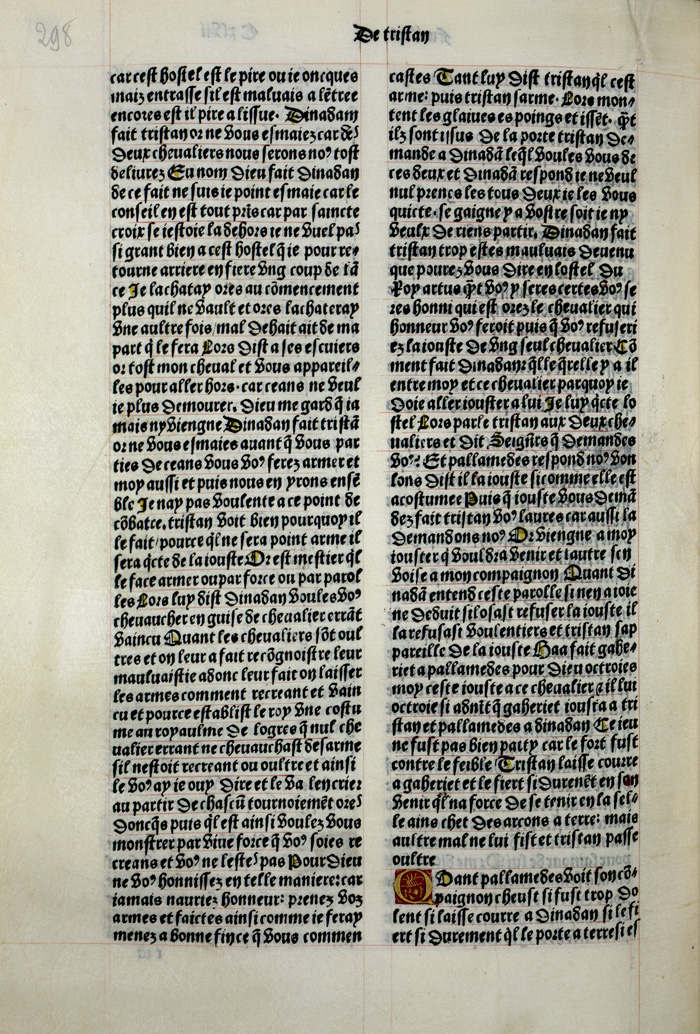 298
De tristan
car cest hostel est le pire ou ie oncques
maiz entrasse sil est maluais a lẽtree
encores est il pire a lissue. Dinadam
fait tristan or ne vous esmaiez car de
deux cheualiers nous serons noꝰ tost
deliurez En nom dieu fait dinadan
de ce fait ne suis ie point esmaie car le
conseil en est tout prẽs car par saincte
croix se iestoie la dehors ie ne vuel paꝰ
si grant bien a cest hostel q̃ ie pour re⸗
tourne arriere en fiere vng coup de lã
ce Je lachatay ores au cõmencement
plus quil ne vault et ores lachateray
vne aultre fois/mal dehait ait de ma
part q̃ le fera Lors dist a ses escuiers
or tost mon cheual et vous appareil⸗
les pour aller hors. car ceans ne veul
ie plus demourer. dieu me gard q̃ ia
mais ny viengne Dinadan fait tristã
or ne vous esmaies auant q̃ vous par
ties de ceans vous voꝰ ferez armer et
moy aussi et puis nous en yrons ensẽ
ble Je nay pas voulente a ce point de
cõbatre. tristan voit bien pourquoy il
le fait/pource ql̃ ne sera point arme il
sera q̃cte de la iouste Or est mestier ql̃
le face armer ou par force ou par parol
les Lors luy dist dinadan voules voꝰ
cheuaucher en guise de cheualier errãt
vaincu Quant les cheualiers sõt oul
tres et on leur a fait recõgnoistre leur
mauluaistie adonc leur fait on laisser
les armes comment recreant et vain
cu et pource establist le roy vne costu
me au royaulme de logres q̃ nul che
ualier errant ne cheuauchast desarme
sil nestoit recreant ou oultre et ainsi
le voꝰ ay ie ouy dire et le va len crier
au partir de chascũ tournoiemẽt oreꝰ
doncq̃s puis ql̃ est ainsi voulez vous
monstrer par viue force q̃ voꝰ soies re
creans et voꝰ ne lesteꝰ pas Pour dieu
ne voꝰ honnissez en telle maniere: car
iamais nauriez honneur: prenez voz
armes et faictes ainsi comme ie feray
menez a bonne fin ce q̃ vous commen
castes Tant luy dist tristan ql̃ cest
arme: puis tristan sarme. Lors mon⸗
tent les glaiues es poings et issẽt. q̃t
ilz sont issus de la porte tristan de⸗
mande a dinadã leq̃l voules vous de
ces deux et dinadã respond ie ne veul
nul prenes les tous deux ie les vous
quicte. se gaigne y a vostre soit ie ny
veulx de riens partir. Dinadan fait
tristan trop estes mauluais deuenu
que pourez vous dire en lostel du
Roy artus q̃t voꝰ y seres certes voꝰ se
res honni qui est orez le cheualier qui
honneur voꝰ feroit puis q̃ voꝰ refuseri
ez la iouste de vng seul cheualier Cõ
ment fait dinadan: q̃lle q̃relle y a il
entre moy et ce cheualier parquoy ie
doie aller iouster a lui Je luy q̃cte lo
stel Lors parle tristan aux deux che⸗
ualiers et dit Seign̄rs q̃ demandes
voꝰ: Et pallamedes respond noꝰ von
lons dist il la iouste si comme elle est
acostumee Puis q̃ iouste vous demã
dez fait tristan voꝰ laures car aussi la
demandons noꝰ Or viengne a moy
iouster q̃ vouldra venir et lautre sen
voise a mon compaignon Quant di
nadã entend ceste parolle si nen a ioie
ne deduit si losast refuser la iouste il
la refusast voulentiers et tristan sap
pareille de la iouste Haa fait gahe⸗
riet a pallamedes pour dieu octroies
moy ceste iouste a ce cheualier ⁊ il lui
octroie si aduĩt q̃ gaheriet iousta a tri
stan et pallamedes a dinadan Ce ieu
ne fust pas bien party car le fort fust
contre le feible Tristan laisse courre
a gaheriet et le fiert si durenẽt en son
venir ql̃ na force de se tenir en la sel⸗
le ains chet des arcons a terre: mais
aultre mal ne lui fist et tristan passe
oultre
Qant pallamedes voit son cõ⸗
paignon cheust si fust trop do
lent si laisse courre a dinadan si le fi
ert si durement ql̃ le porte a terre si es